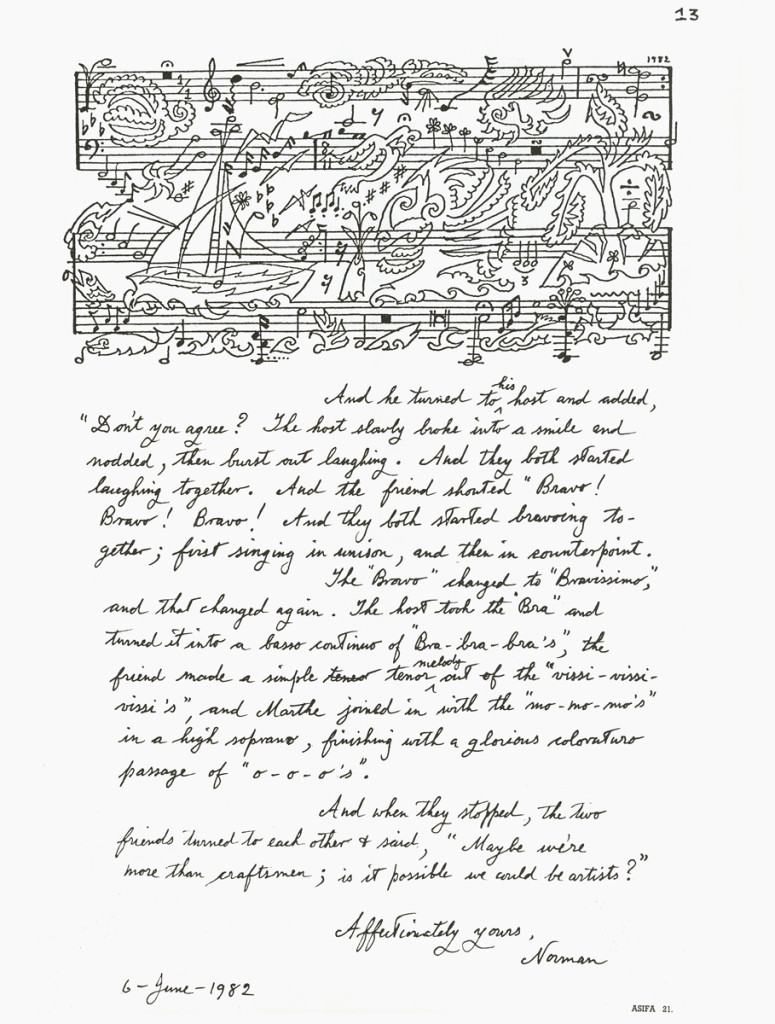 13
1982
And he turned to his host and added,
"Don't you agree? The host slowly broke into a smile and
nodded, then burst out laughing. And they both started
laughing together. And the friend shouted "Bravo!
Bravo! Bravo! And they both started bravoing to-
gether; first singing in unison, and then in counterpoint.
The "Bravo" changed to "Bravissimo,"
and that changed again. The host took the "Bra" and
turned it into a basso continuo of "Bra-bra-bra's", the
friend made a simple tenor tenor melody out of the "vissi-vissi-
vissi's", and Marthe joined in with the "mo-mo-mo's"
in a high soprano, finishing with a glorious coloraturo
passage of "o-o-o's".
And when they stopped, the two
friends turned to each other & said, "Maybe we're
more than craftsmen; is it possible we could be artists?"
Affectionately yours,
Norman
6-June-1982
ASIFA 21.